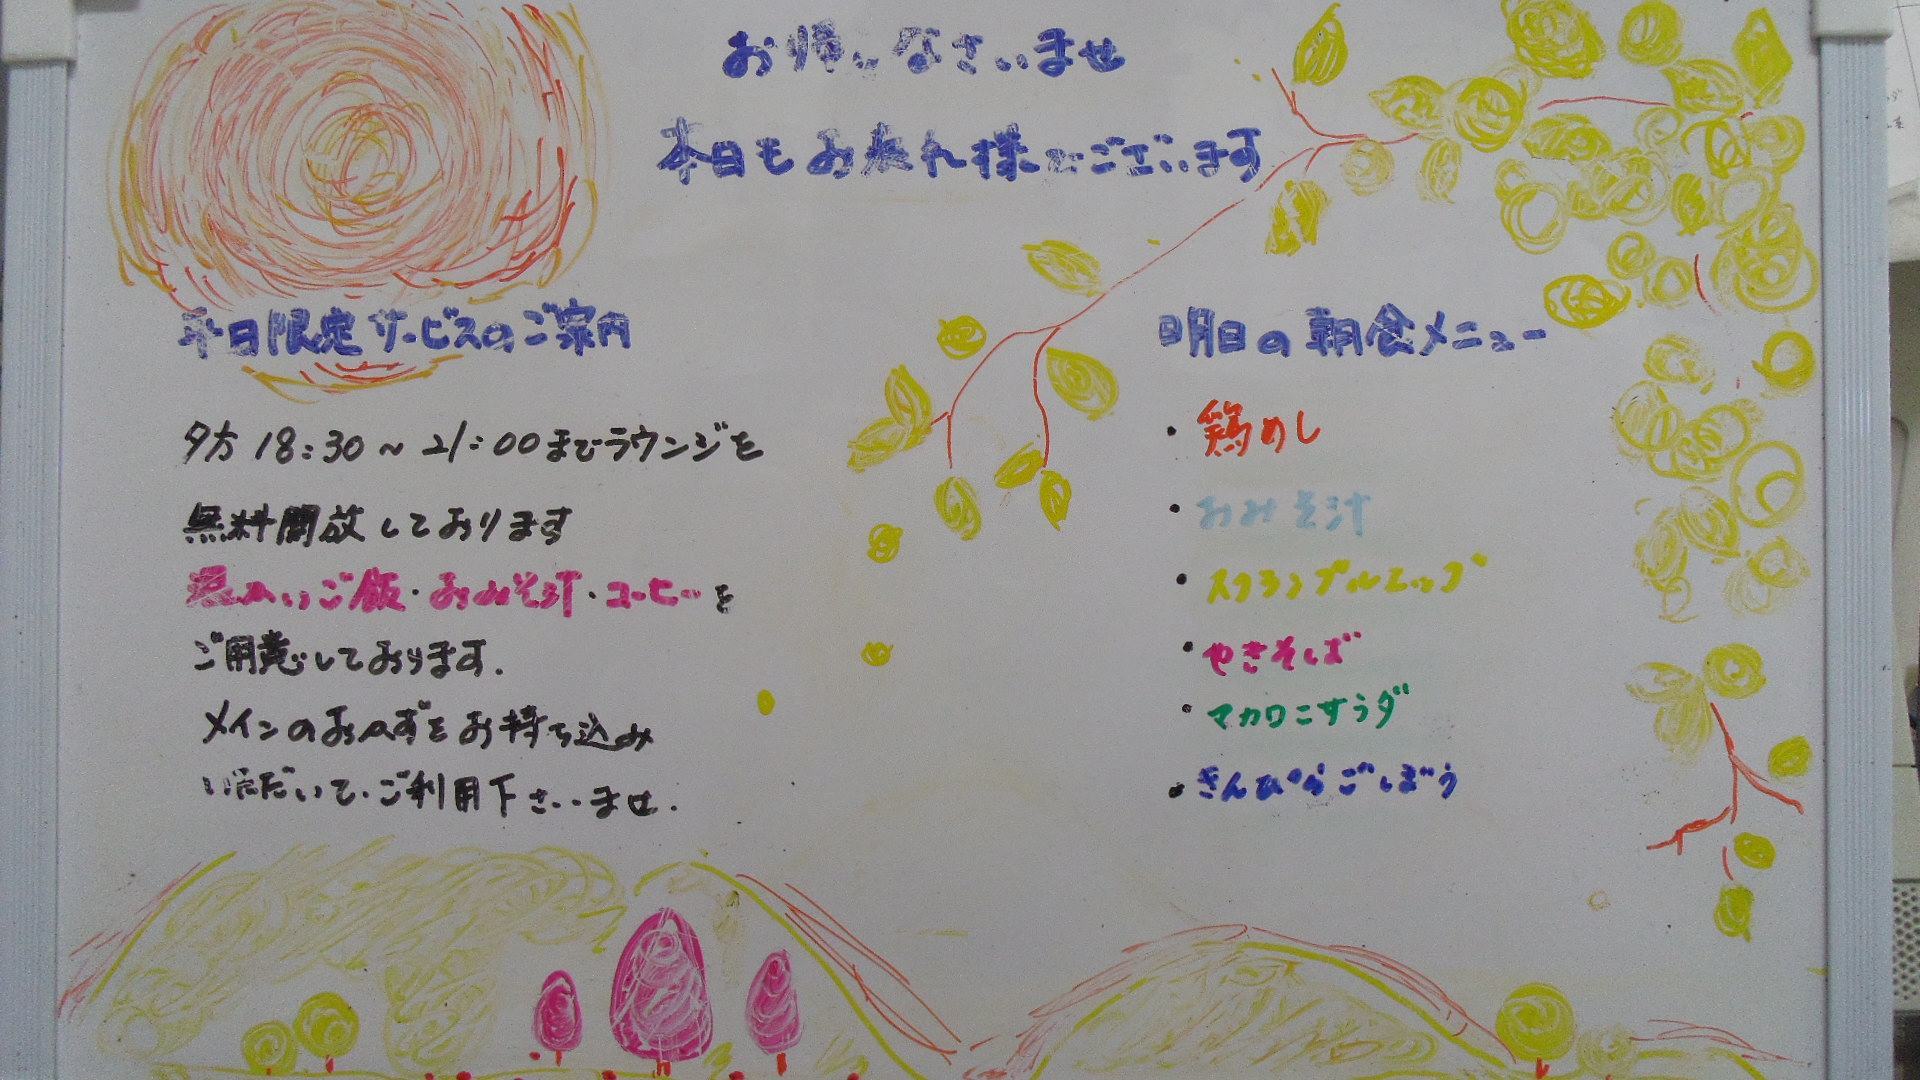 お帰りなさいませ
本日もお疲れ様でございます
平日限定サービスのご案内
夕方18:30~21:00までラウンジを
無料開放しております
温かいご飯・おみそ汁・コーヒーを
ご用意しております.
メインのおかずをお持ち込み
いただいて、ご利用下さいませ.
明日の朝食メニュー
・鶏めし
・おみそ汁
・スクランブルエッグ
・やきそば
・マカロニサラダ
・きんぴらごぼう